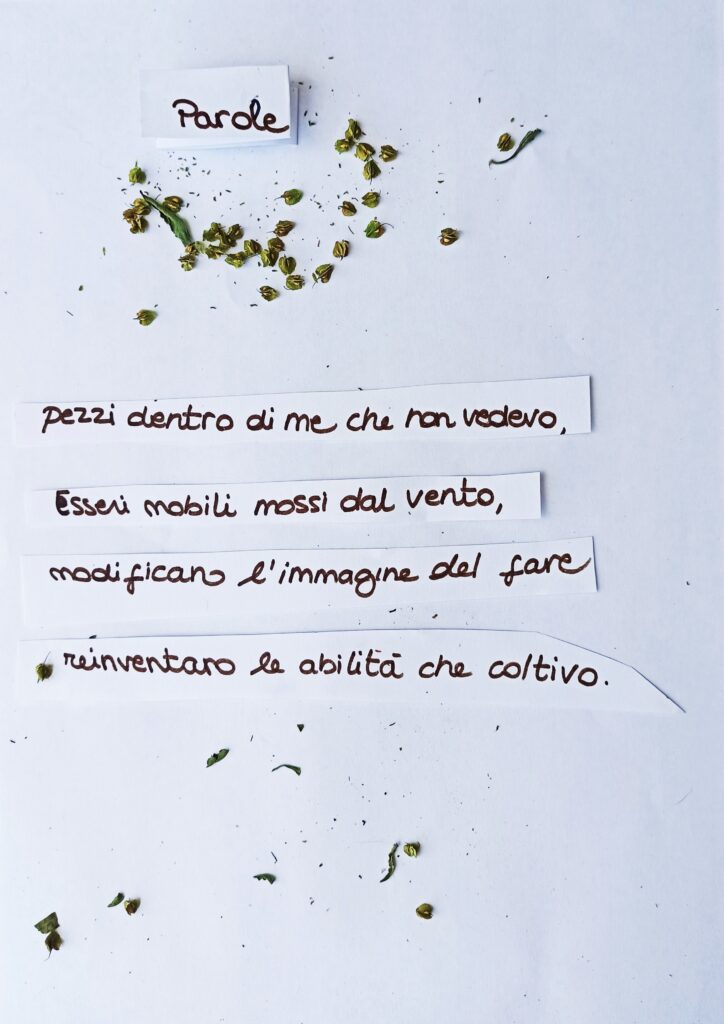 Parole
pezzi dentro di me che non vedevo,
Esseri mobili mossi dal vento,
modificano l'immagine del fare
reinventano le abilità che coltivo.